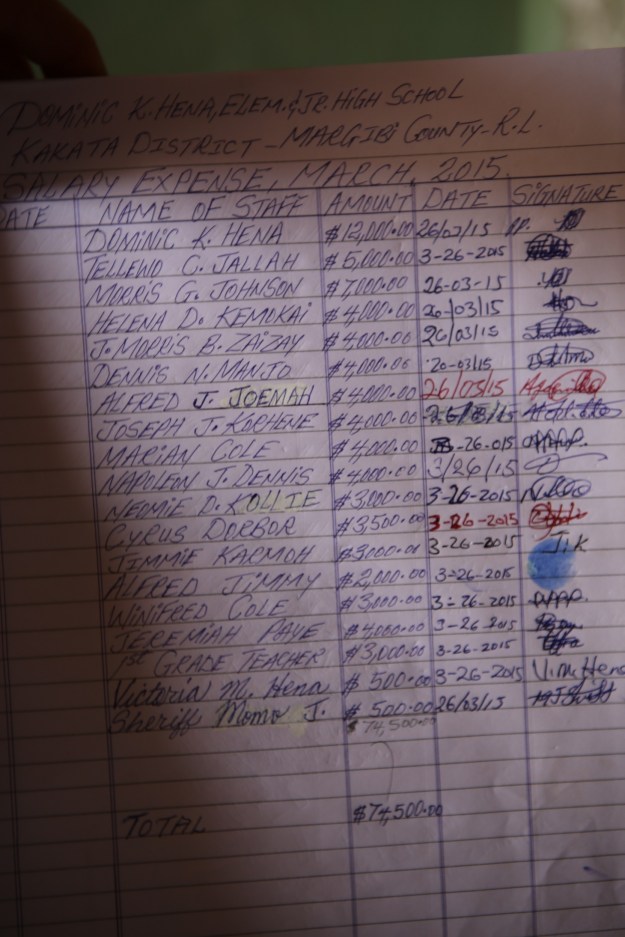 DOMINIC K. HENA, ELEM. & JR. HIGH SCHOOL
KAKATA DISTRICT - MARGIBI COUNTY - R.L.
SALARY EXPENSE, MARCH, 2015.
DATE NAME OF STAFF AMOUNT DATE SIGNATURE
DOMINIC K. HENA $12,000.00 26/03/15
TELLEWO C. JALLAH $5,000.00 3-26-2015
MORRIS G. JOHNSON $7,000.00 26-03-15
HELENA D. KEMOKAI $4,000.00 26/03/15
J. MORRIS B. ZAIZAY $4,000.00 26/03/15
DENNIS N. MANJO $4,000.00 20-03/15
ALFRED J. JOEMAH $4,000.00 26/03/15
JOSEPH J. KORHENE $4,000.00 26/03/15
MARIAN COLE $4,000.00 -26-015
NAPOLEON J. DENNIS $4,000.00 3/26/15
NEOMIE D. KOLLIE $3,000.00 3-26-2015
CYRUS DORBOR $3,500.00 3-26-2015
JIMMIE KARMOH $3000.00 3-26-2015 J.K
ALFRED JIMMY $2,000.00 3-26-2015
WINIFRED COLE $3,000.00 3-26-2015
JEREMIAH PAYE $4,000.00 3-26-2015
1st GRADE TEACHER $3,000.00 3-26-2015
Victoria M. Hena $500.00 3-26-2015 V.M. Hena
Sheriff Momo J. $500.00 26/03/15
$74,500.00
TOTAL $74,500.00